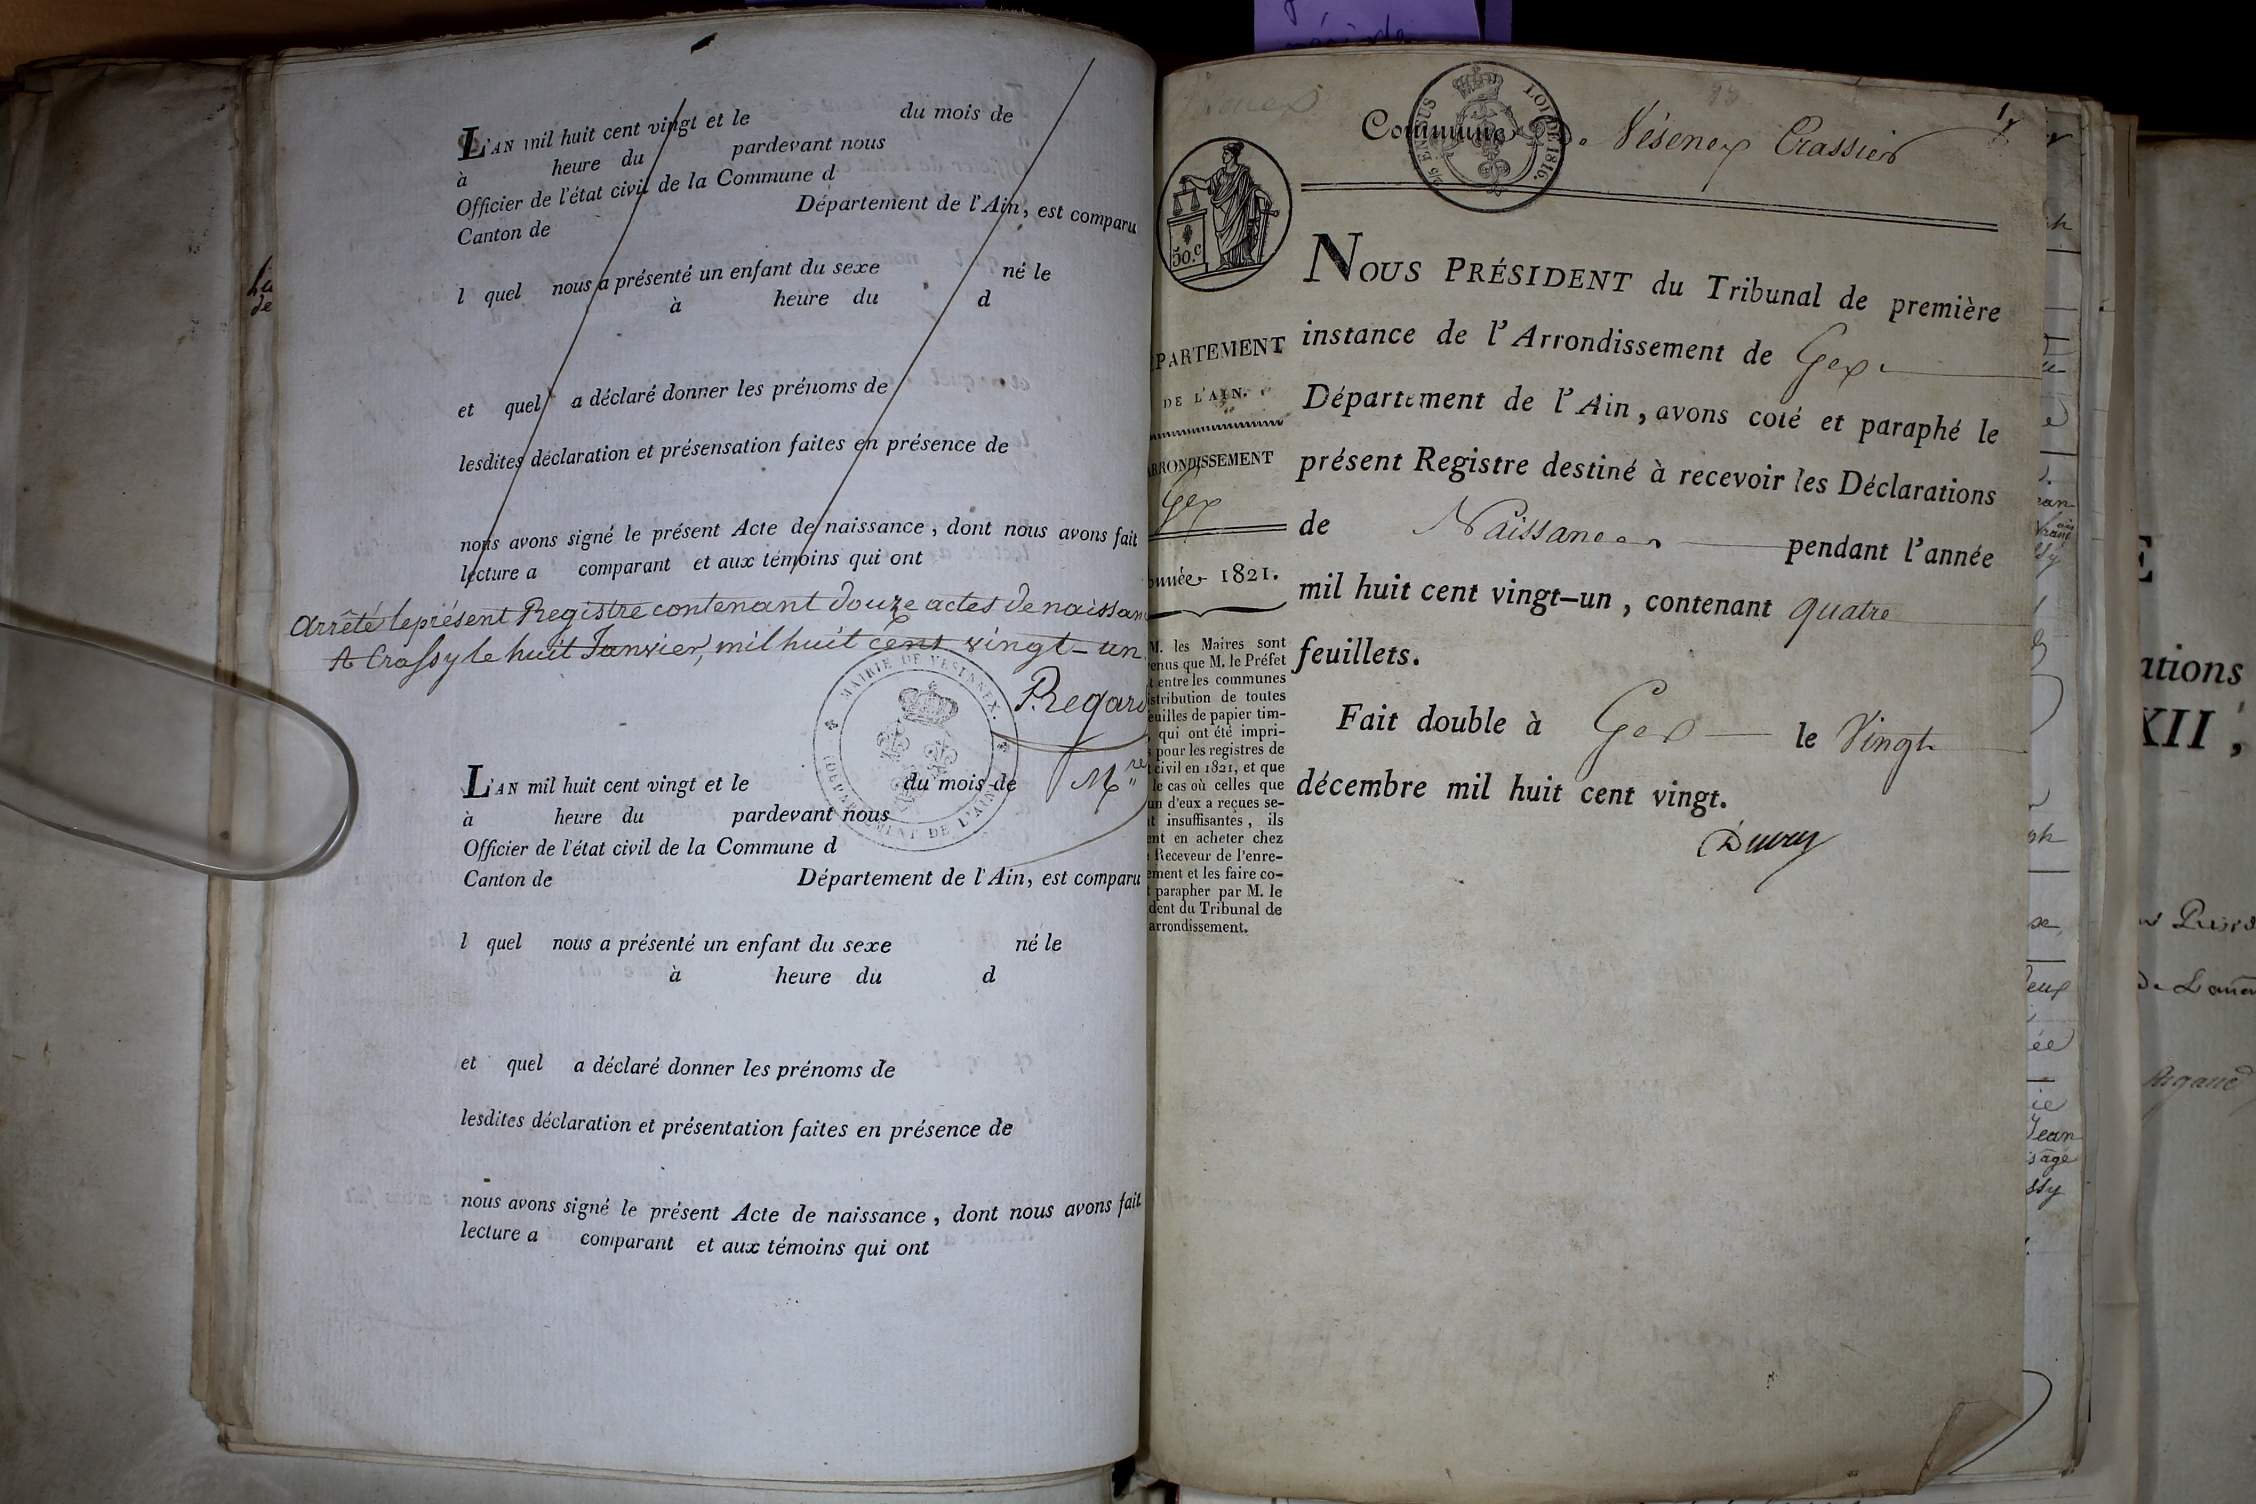 L'AN mil huit cent vingt et le du mois de
à heure du pardevant nous
Officier de l'état civil de la Commune d
Canton de Département de l'Ain, est comparu
l quel nous a présenté un enfant du sexe né le
à heure du d
et quel a déclaré donner les prénoms de
lesdites déclaration et présensation faites en présence de
nous avons signé le présent Acte de naissance, dont nous avons fait
lecture a comparant et aux témoins qui ont
Arrêté le présent Registre contenant douze actes de naissan
A Crassy le huit Janvier, mil huit cent vingt-un
P. Regard
Mre
MAIRIE DE VESENEX.
DEPARTEMENT DE L'AIN
L'AN mil huit cent vingt et le du mois de
à heure du pardevant nous
Officier de l'état civil de la Commune d
Canton de Département de l'Ain, est comparu
l quel nous a présenté un enfant du sexe né le
à heure du d
et quel a déclaré donner les prénoms de
lesdites déclaration et présentation faites en présence de
nous avons signé le présent Acte de naissance, dont nous avons fait
lecture a comparant et aux témoins qui ont
Commune De Vésenex Crassier
1
EN SUS
LOI DE 1816.
50.c
PARTEMENT
DE L'AIN.
ARRONDISSEMENT
Gex
année 1821.
M. les Maires sont
enus que M. le Préfet
t entre les communes
istribution de toutes
euilles de papier tim-
, qui ont été impri-
s pour les registres de
t civil en 1821, et que
le cas où celles que
un d'eux a reçues se-
t insuffisantes, ils
ent en acheter chez
Receveur de l'enre-
ement et les faire co-
t parapher par M. le
dent du Tribunal de
arrondissement.
NOUS PRÉSIDENT du Tribunal de première
instance de l'Arrondissement de Gex
Département de l'Ain, avons coté et paraphé le
présent Registre destiné à recevoir les Déclarations
de Naissances pendant l'année
mil huit cent vingt-un, contenant quatre
feuillets.
Fait double à Gex le Vingt
décembre mil huit cent vingt.
ations
XII,